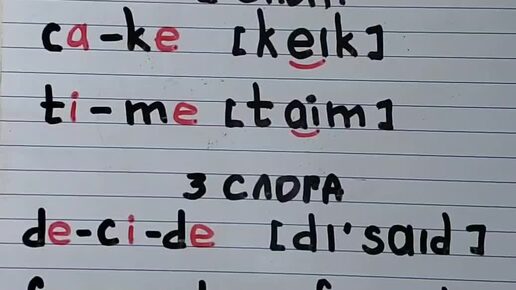 ca-ke [keık]
ti-me [taim]
3 СЛОГА
de-ci-de [dı'saıd]